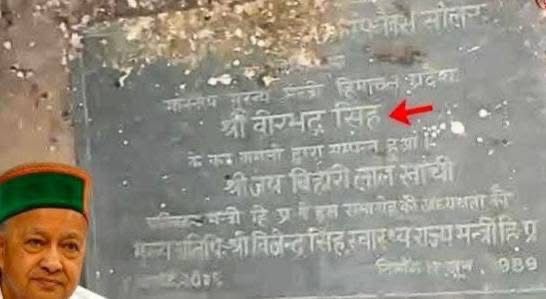 सोलन
माननीय मुख्य मन्त्री हिमाचल प्रदेश
श्री वीरभद्र सिंह
के कर कमलों द्वारा सम्पन्न हुआ।
श्री जय बिहारी लाल खाची
मन्त्री हि प्र ने इस समारोह की अध्यक्षता की
मुख्य अतिथि: श्री विजेन्द्र सिंह, स्वास्थ्य राज्य मन्त्री हि प्र
जून, 989